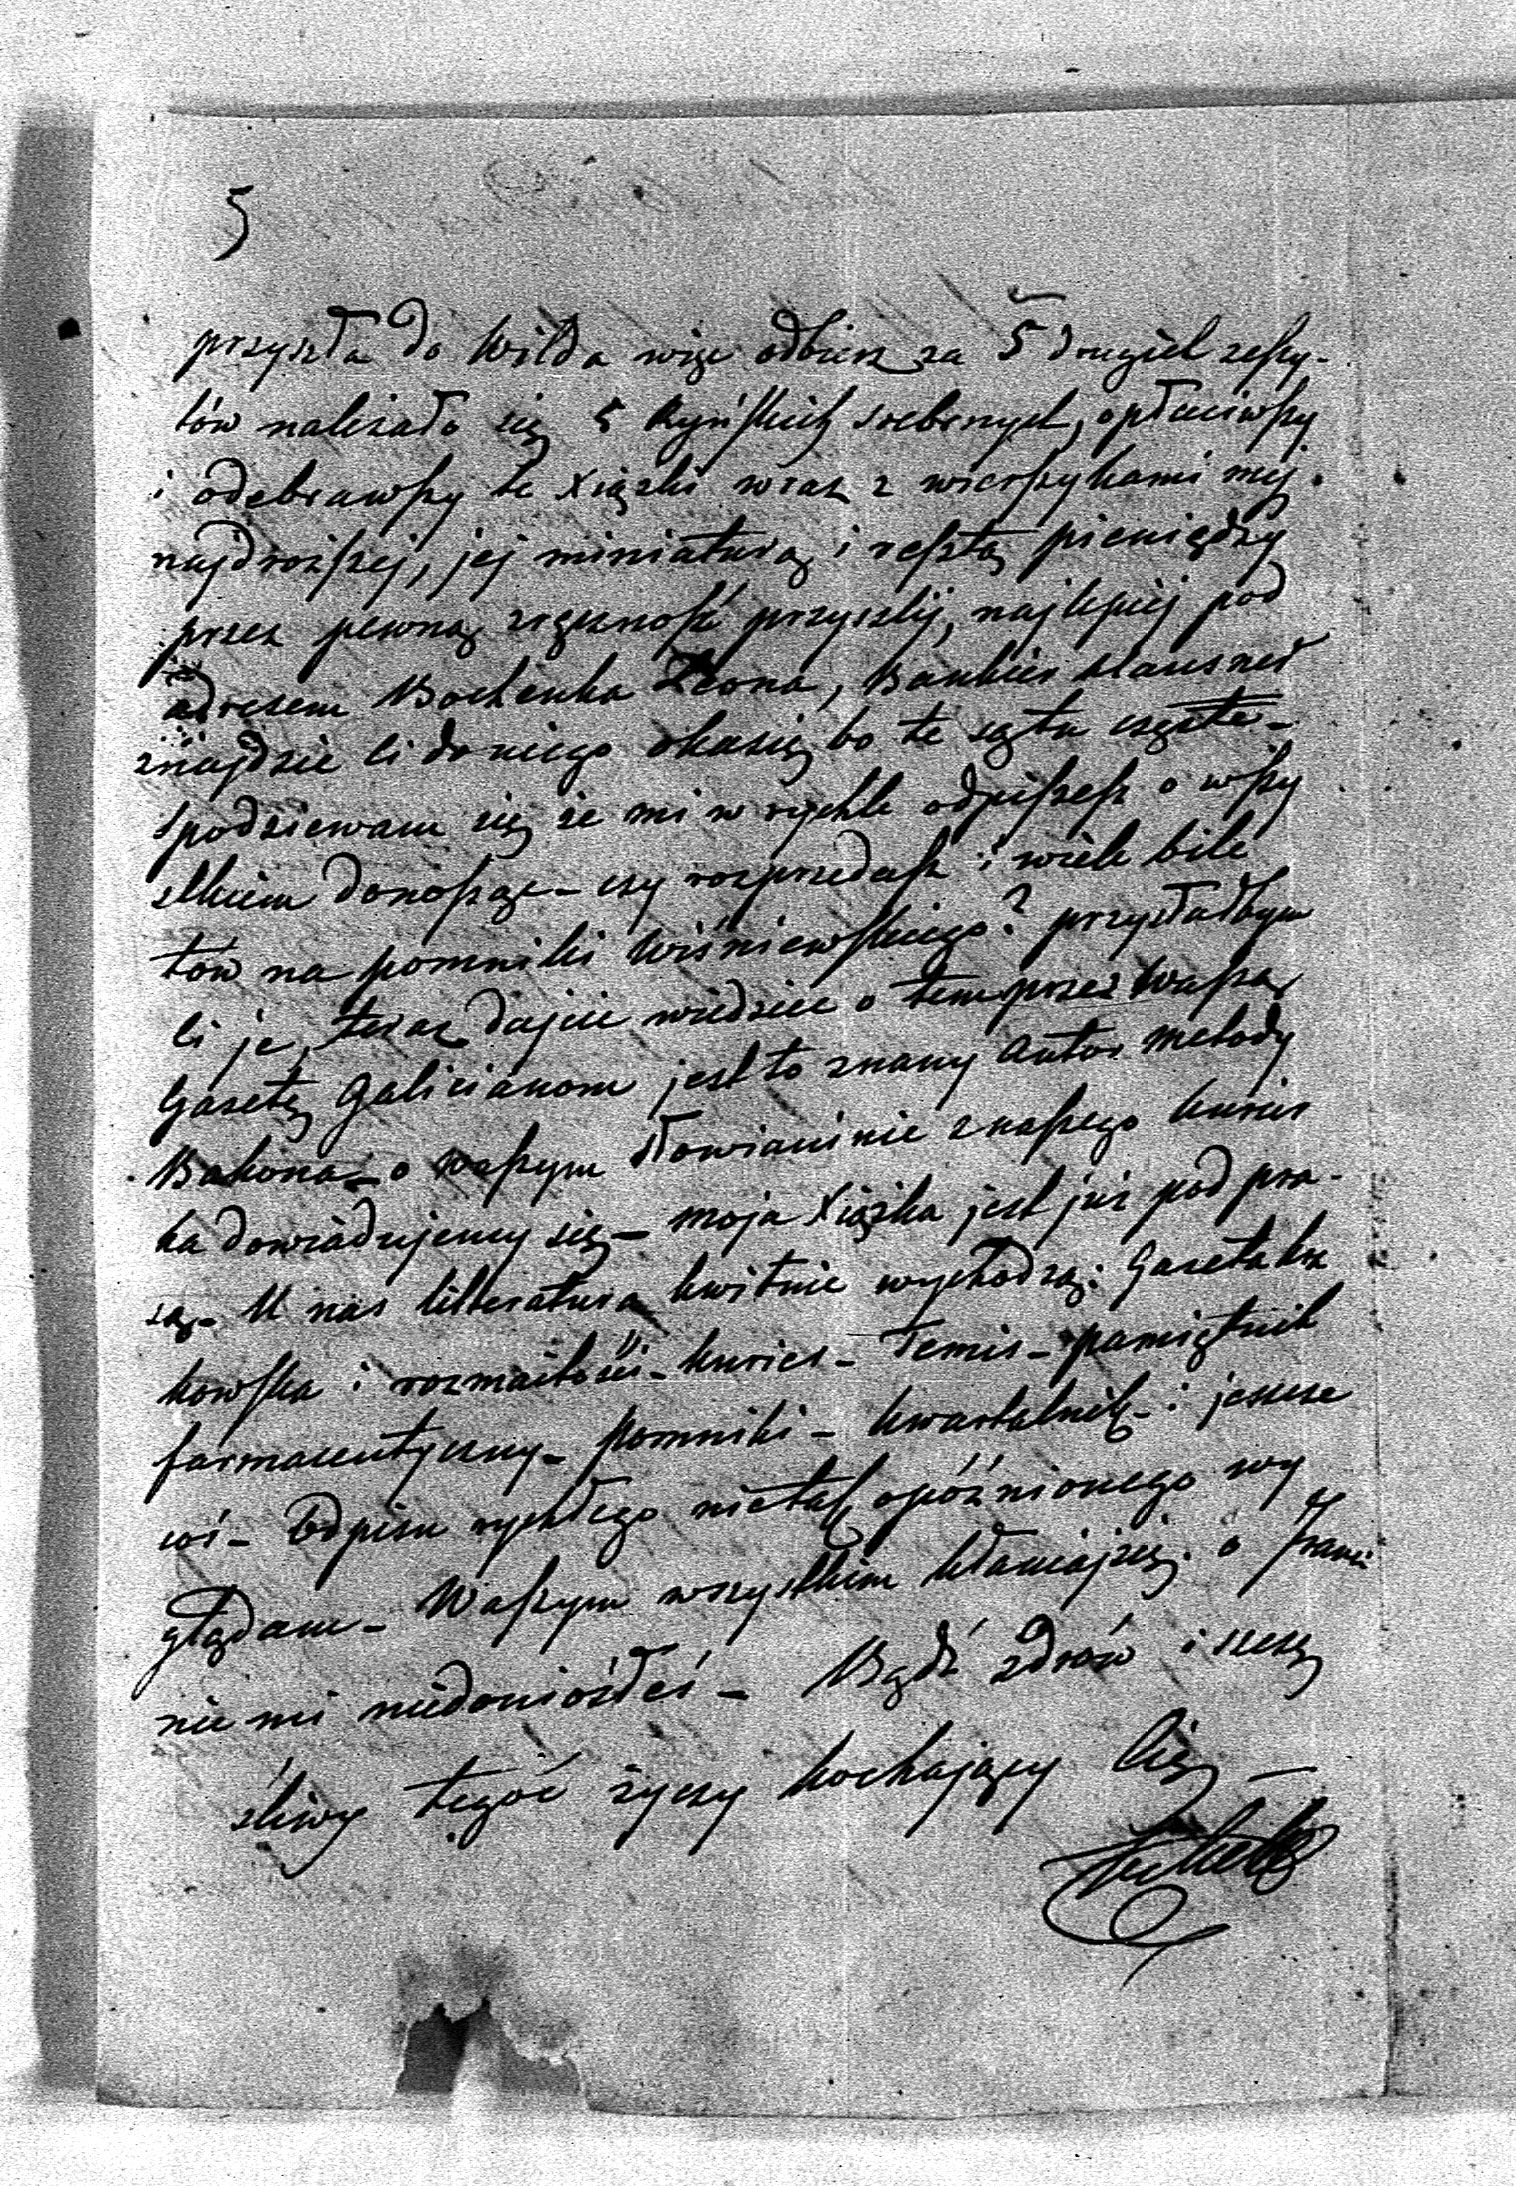 5
przyszła do Wilda więc odbierz za 5 drugich zeszy-
tów należało się 5 Ryńskich srebrnych, opłaciwszy
i odebrawszy te xiążki wraz z wierszykami mej
najdroższej, jej miniaturą i resztą pieniędzy
przez pewną zręczność przyszlij, najlepiej pod
adresem Bochenka Leona, Bankier Hausner
znajdzie ci do niego okasię bo te są tu częste -
spodziewam się że mi w rychle odpiszesz o wszy
stkiem donosząc - czy rozprzedasz i wiele bile
tów na pomniki Wiśniewskiego? przysłałbym
ci je, teraz dajcie wiedzieć o tem przez Waszą
Gazetę Galicianom jest to znany Autor metody
Bakona - o waszym Słowianinie z naszego kurier
ka dowiadujemy się - moja xiążka jest już pod pra-
są - U nas litteratura kwitnie wychodzą: Gazeta kra
kowska i rozmaitości - kurier - Temis - pamiętnik
farmaceutyczny - Pomniki - kwartalnik - i jeszcze
coś - Odpisu rychłego nietak opóźnionego wy
glądam - Waszym wszystkim kłaniaj się. o Franci
nie mi niedoniosłeś - Bądź zdrów i szczę
śliwy tegoć życzy kochający Cię -